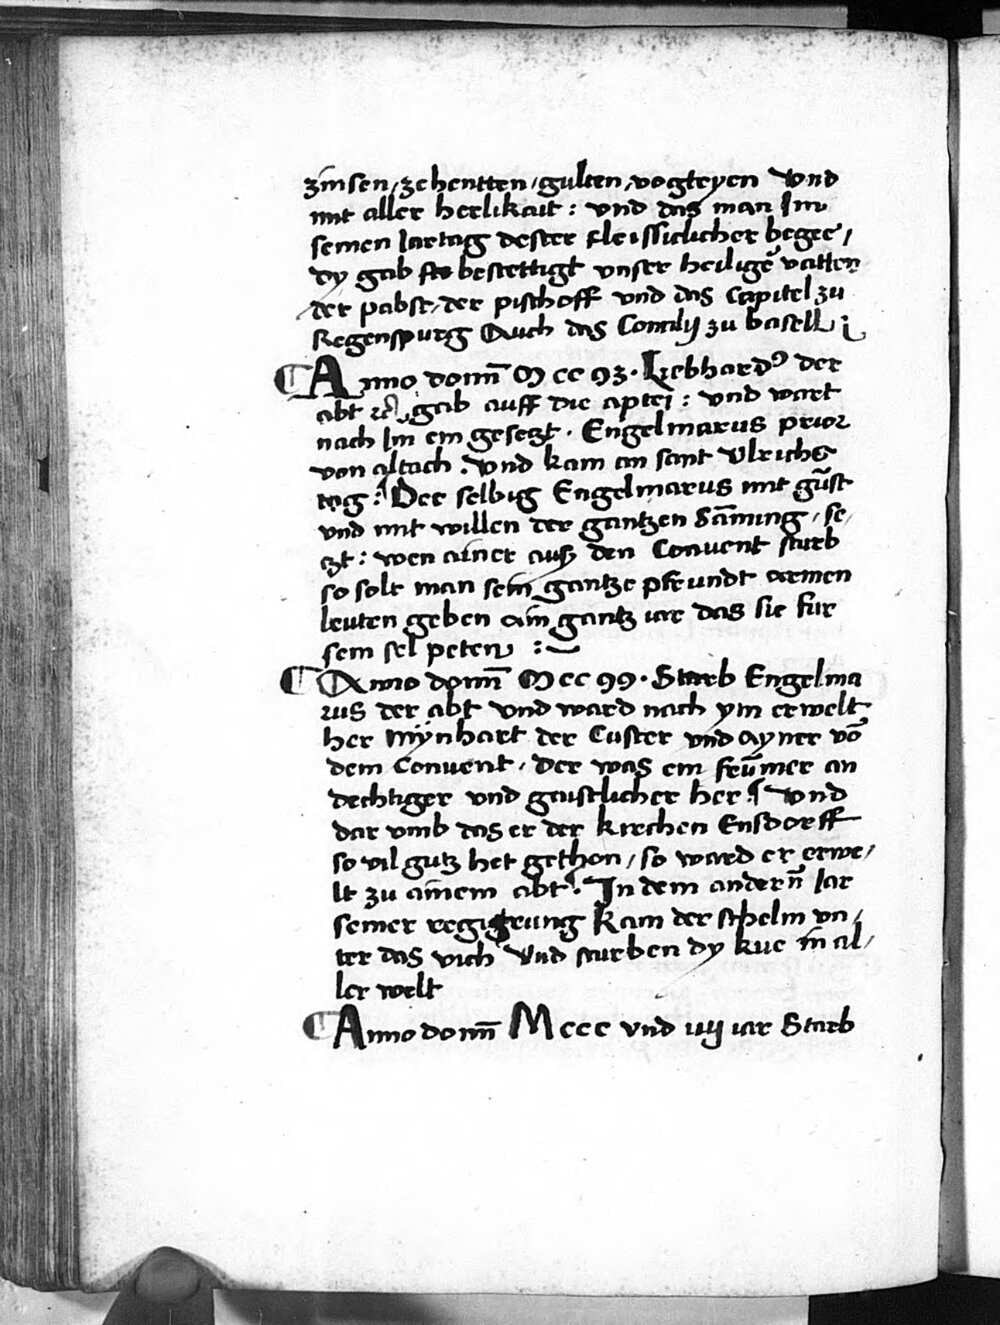 zinsen / zehentten / gulten / vogteyen Vnd
mit aller herlikait : vnd das man Im
seinen Jartag dester fleissiclicher begee /
dy gab bestettigt vnser heiligē vatter
der pabst / der pischoff vnd das Capitel zu
Regenspurg Auch das Concilij zu basell
Anno domī M cc 93 · Liebhardꝰ der
abt gab auff die aptei : vnd wart
nach Im ein gesetzt · Engelmarus prior
von altach . Vnd kam an sant Vlrichs
tag : Der selbig Engelmarus mit gūst
vnd mit willen der gantzen Sāmūng / se /
tzt : wen ainer auß den Conuent starb
so solt man sein gantze pfrundt armen
leuten geben ain gantz iar das sie fur
sein sel peten :
Anno domī M cc 99 · Starb Engelma
rus der abt vnd ward nach ym erwelt
her Mÿnhart der Custer vnd ayner vō
dem Conuent . Der was ein frūmer an
dechtiger vnd gaistlicher her . Vnd
dar vmb das er der kirchen Ensdorff
so vil gutz het gethon / so ward er erwe /
lt zu ainem abt . In dem andern̄ Jar
seiner regirung kam der schelm vn /
ter das vich Vnd sturben dy kue in al /
ler welt
Anno domī M ccc vnd iiij iar Starb